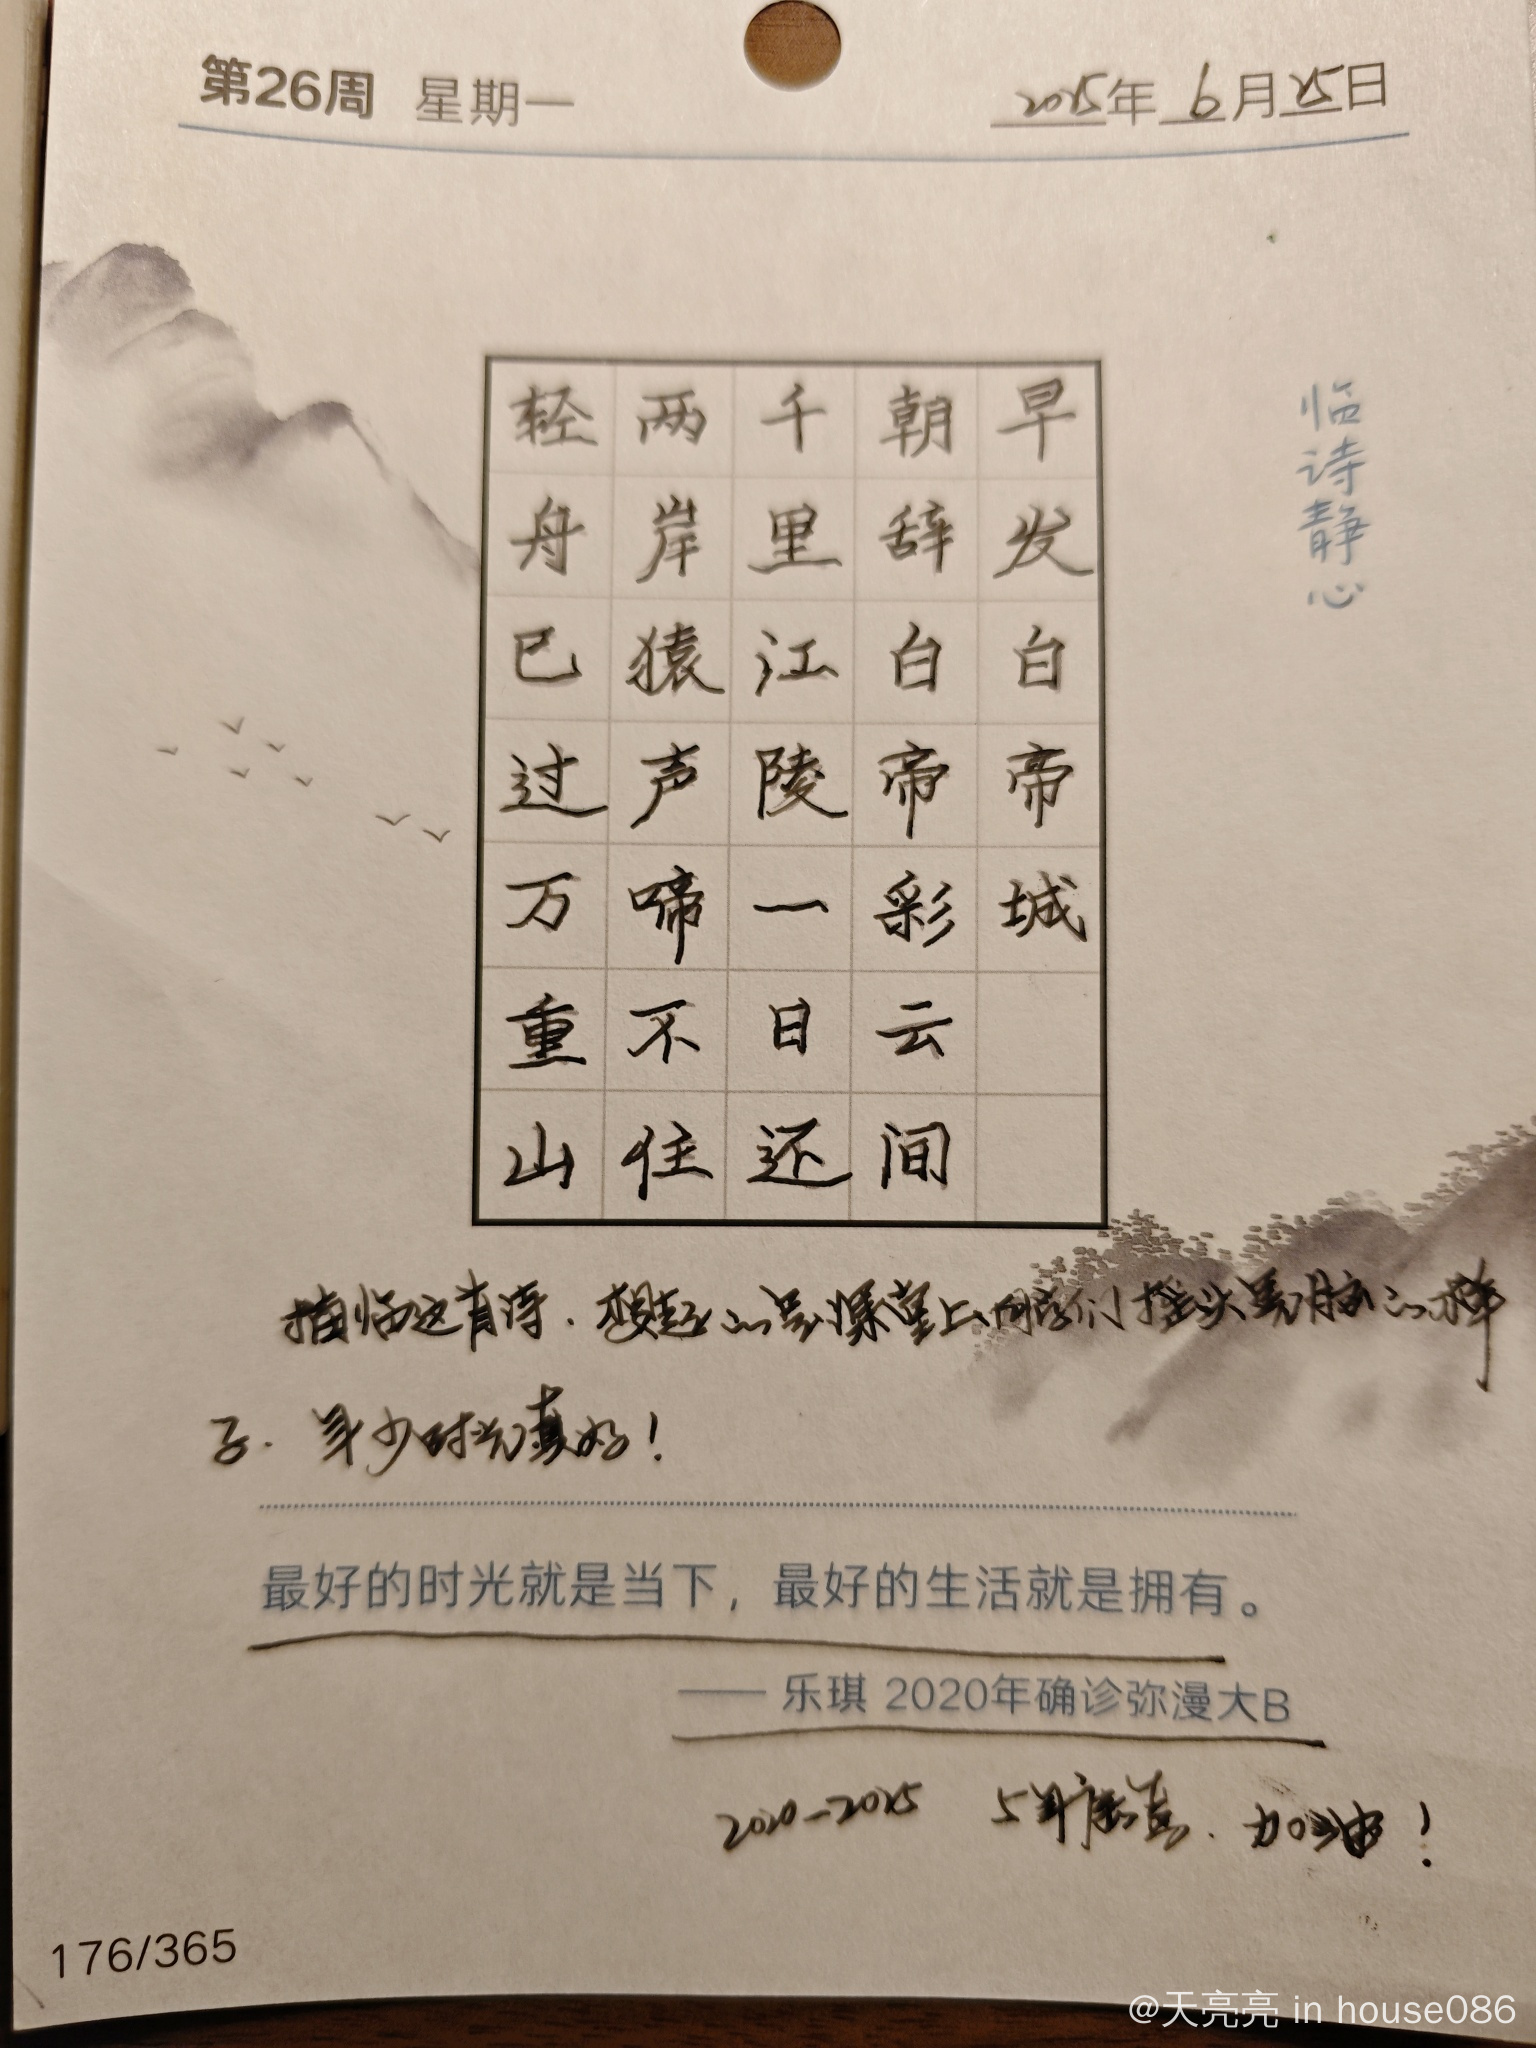 第26周 星期一
2025年6月25日
临诗静心
早发白帝城
朝辞白帝彩云间
千里江陵一日还
两岸猿声啼不住
轻舟已过万重山
描临这首诗.想起小学课堂上同学们摇头晃脑的样
子.年少时光真好!
最好的时光就是当下，最好的生活就是拥有。
—— 乐琪 2020年确诊弥漫大B
2020-2025 5年康复.加油!
176/365
@天亮亮 in house086